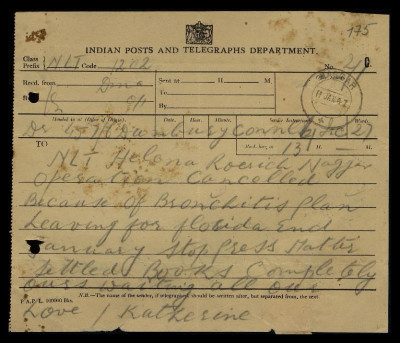 175
INDIAN POSTS AND TELEGRAPHS DEPARTMENT.
Class
Prefix NLT Code 1202 No.
Recd. from Dma Sent to H. M.
To
By
(Handed in at (Office of Origin)). Date. Hour. Minute. Service Instructions. Words.
Danbury Conn 27
TO Recd. here at 13 H. M.
NLT Helena Roerich Naggar
Operation Cancelled
Because of Bronchitis Plan
Leaving for florida End
January Stop Press Matter
Settled Books Completely
ours waiting all our
N.B.—The name of the sender, if telegraphed, should be written after, but separated from, the text.
Love / Katherine